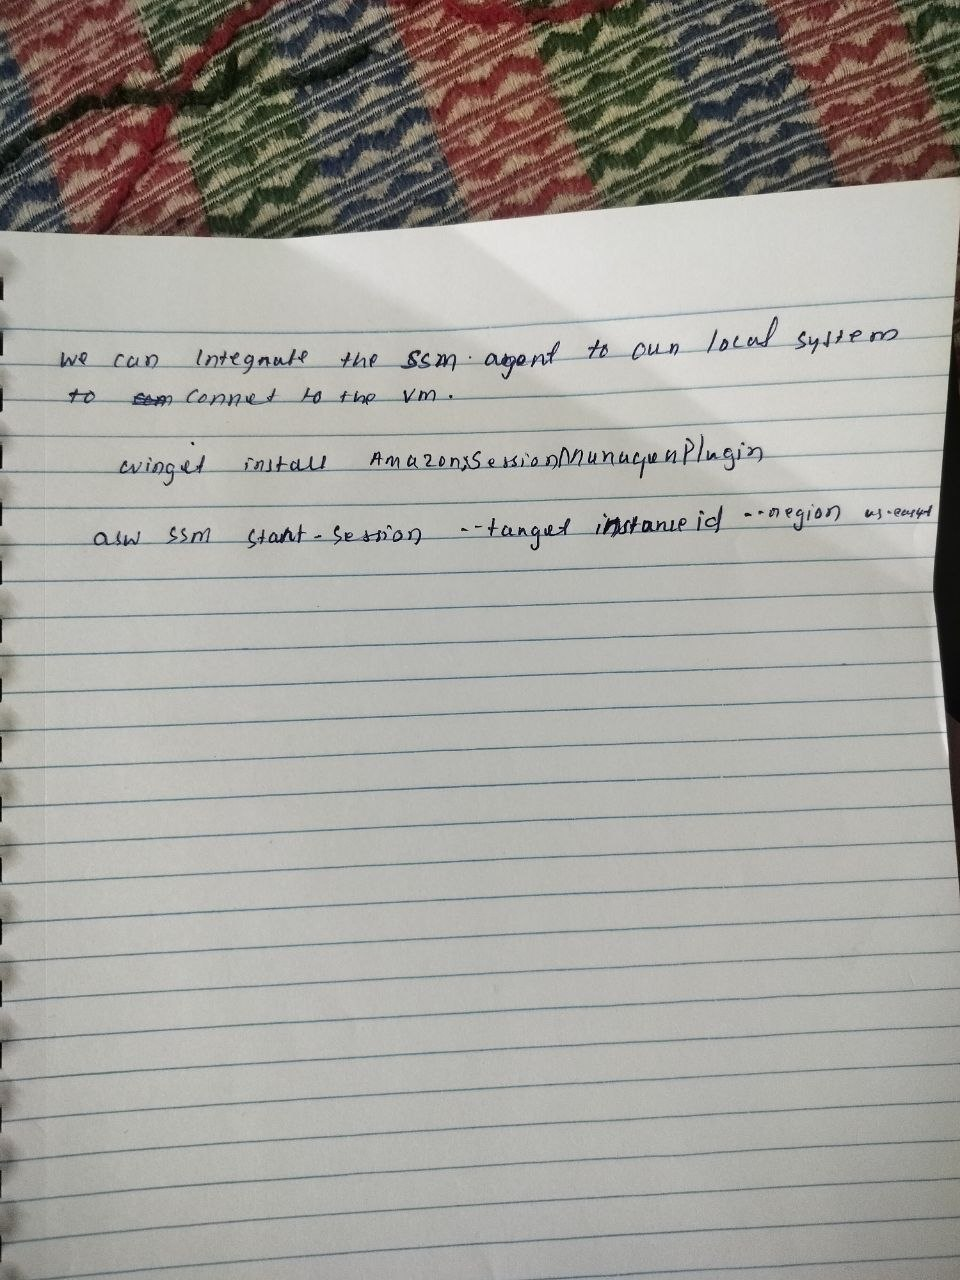 we can Integrate the ssm. agent to our local system
to ssm connet to the vm.
winget install Amazon.SessionManagerPlugin
asw ssm start-session --target instance id --region us-east